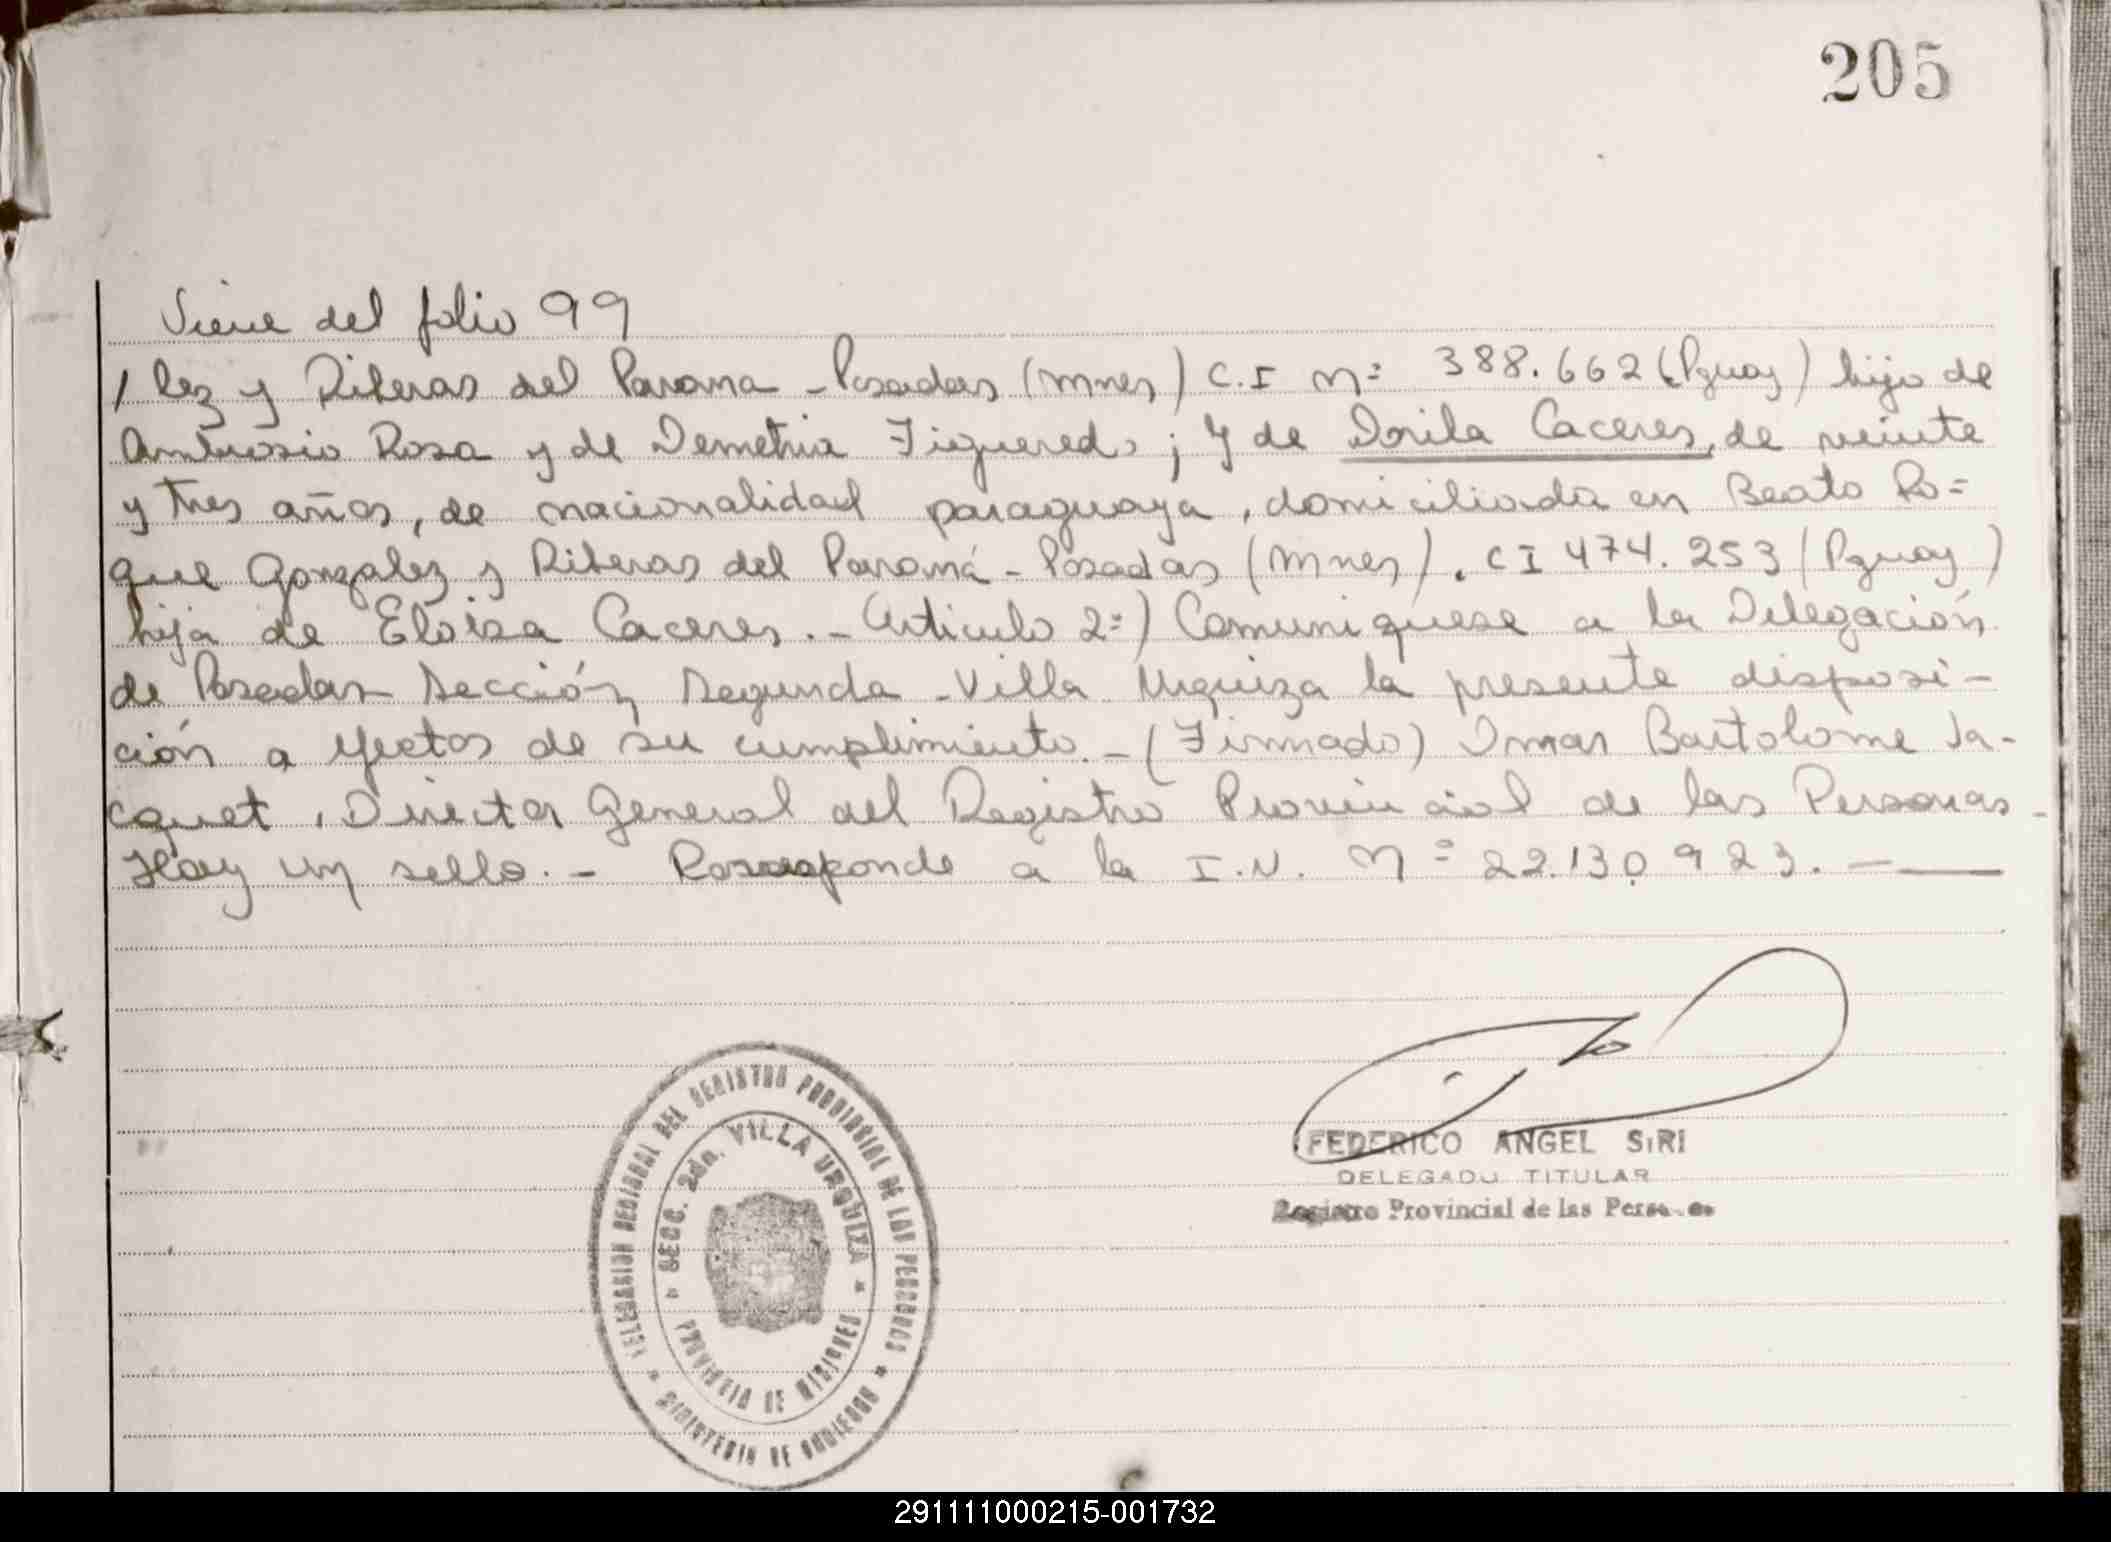 205
Viene del folio 99
/ lez y Riberas del Parana - Posadas (Mnes) C.I Nº 388.662 (Pguay) hijo de
Ambrosio Rosa y de Demetria Figueredo; Y de Dorila Caceres, de veinte
y tres años, de nacionalidad paraguaya, domiciliada en Beato Ro=
que Gonzalez y Riberas del Paraná - Posadas (Mnes). CI 474.253 (Pguay)
hija de Eloisa Caceres. - Articulo 2º) Comuniquese a la Delegación
de Posadas Sección Segunda - Villa Urquiza la presente disposi-
ción a efectos de su cumplimiento. - (Firmado) Omar Bartolome Ja-
cquet, Director General del Registro Provincial de las Personas -
Hay un sello. - Corresponde a la I.N. Nº 22.130.923. -
DELEGACION REGIONAL DEL REGISTRO PROVINCIAL DE LAS PERSONAS
* MINISTERIO DE GOBIERNO *
* SECC. 2da. VILLA URQUIZA *
PROVINCIA DE MISIONES
FEDERICO ANGEL SIRI
DELEGADO TITULAR
Registro Provincial de las Personas
291111000215-001732